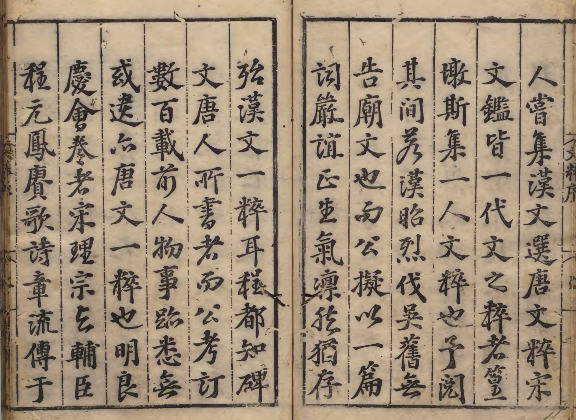 人嘗集漢文選唐文粹宋
文鑑皆一代文之粹者篁
墩斯集一人文粹也予閱
其间若漢昭烈伐吳舊無
告廟文也而公擬以一篇
詞嚴誼正生氣凛然猶存
殆漢文一粹耳程都知碑
文唐人所書者而公考訂
數百載前人物事跡悉無
或遺亦唐文一粹也明良
慶會卷者宋理宗與輔臣
程元鳳賡歌詩章流傳于